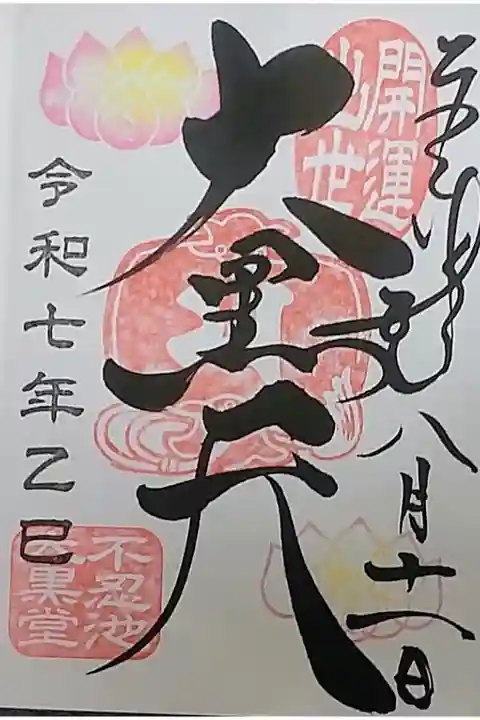 開運
出世
八月十一日
大黒天
令和七年乙巳
不忍池
大黒堂